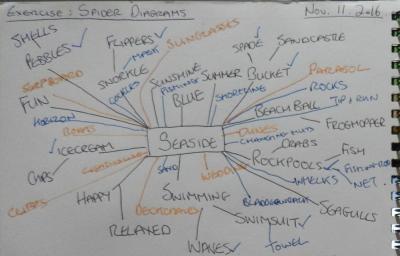 EXERCISE: SPIDER DIAGRAMS
NOV. 11. 2016
SMELLS
FLIPPERS
SUNGLASSES
SPADE
SANDCASTLE
PEBBLES
MASK
SNORKLE
GOGGLES
SUNSHINE
SUMMER
BUCKET
PARASOL
SURFBOARD
FISHING
BLUE
SHORELINE
ROCKS
FUN
TIP & RUN
HORIZON
BEACH BALL
FROGHOPPER
BOATS
SEASIDE
DUNES
CHANGING HUTS
ICECREAM
CRABS
FISH
ROCKPOOLS
CHIPS
SAND
WHELKS
NET
CLIFFS
HAPPY
SWIMMING
BLADDERWRACK
SEAGULLS
DECKCHAIRS
RELAXED
SWIMSUIT
WAVES
TOWEL